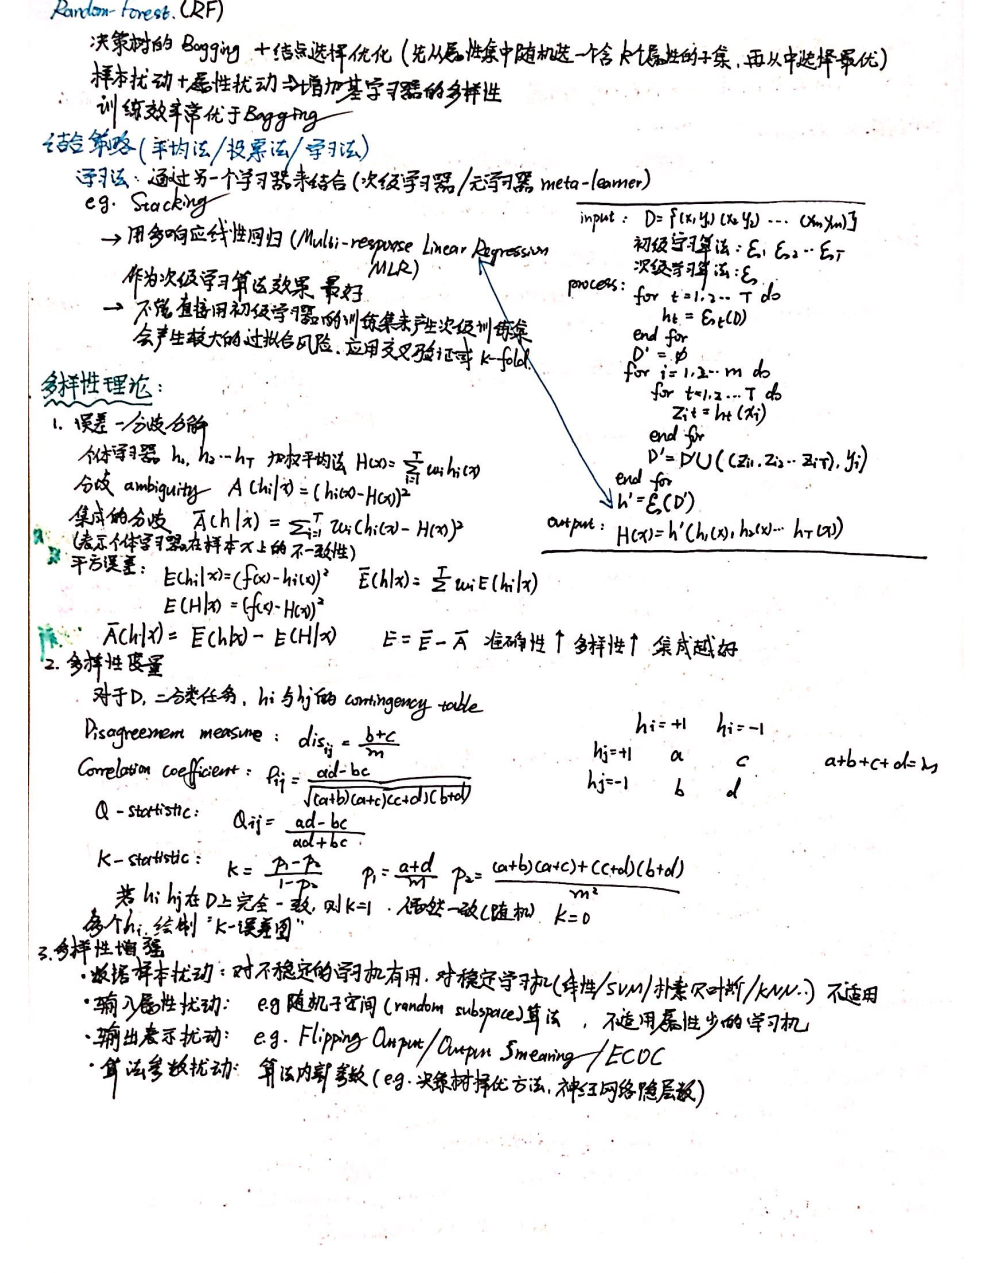 Random Forest. (RF)
决策树的 Bagging + 结点选择优化 (先从属性集中随机选一个含 k个属性的子集, 再从中选择最优)
样本扰动+属性扰动→增加基学习器的多样性
训练效率常优于Bagging
结合策略 (平均法/投票法/学习法)
学习法: 通过另一个学习器来结合 (次级学习器/元学习器 meta-learner)
eg. Stacking
→ 用多响应线性回归 (Multi-response Linear Regression
MLR)
作为次级学习算法效果 最好
→ 不能直接用初级学习器的训练集来产生次级训练集
会产生较大的过拟合风险. 应用交叉验证或 k-fold.
input: D={(x₁,y₁) (x₂ y₂) ... (xm ym)}
初级学习算法: ξ₁ ξ₂ ... ξT
次级学习算法: ξ
process: for t=1,2... T do
ht = ξt(D)
end for
D' = ∅
for i=1,2... m do
for t=1,2... T do
Zit = ht (xi)
end for
D'=D'∪((Zi1, Zi2... ZiT), yi)
end for
h'=ξ(D')
output: H(x)=h'(h₁(x), h₂(x)... hT(x))
多样性理论:
1. 误差-分歧分解
个体学习器 h₁, h₂...hT 加权平均法 H(x)= Σᵢ₌₁ᵀ wi hi(x)
分歧 ambiguity A(hi|x) = (hi(x)-H(x))²
集成的分歧 Ā(h|x) = Σᵢ₌₁ᵀ wi(hi(x) - H(x))²
(表示个体学习器在样本x上的不一致性)
平方误差: E(hi|x)=(f(x)-hi(x))² Ē(h|x)= Σᵀ wi E(hi|x)
E(H|x) =(f(x)-H(x))²
Ā(h|x)= Ē(h|x) - E(H|x) E=Ē-Ā 准确性↑ 多样性↑ 集成越好
2. 多样性度量
对于D, 二分类任务, hi 与 hj 的 contingency table
hi=+1 hi=-1
hj=+1 a c a+b+c+d=m
hj=-1 b d
Disagreement measure: disij = (b+c)/m
Correlation coefficient: ρij = (ad-bc)/√((a+b)(a+c)(c+d)(b+d))
Q-statistic: Qij= (ad-bc)/(ad+bc)
K-statistic: K= (p₁-p₂)/(1-p₂) p₁= (a+d)/m p₂= ((a+b)(a+c)+(c+d)(b+d))/m²
若 hi hj在D上完全一致, 则K=1. 偶然一致(随机) K=0
多个hi, 绘制 "K-误差图"
3. 多样性增强
·数据样本扰动: 对不稳定的学习机有用, 对稳定学习机(线性/SVM/朴素贝叶斯/KNN..) 不适用
·输入属性扰动: eg 随机子空间 (random subspace)算法, 不适用属性少的学习机
·输出表示扰动: e.g. Flipping Output/Output Smearing/ECOC
·算法参数扰动: 算法内部参数 (eg. 决策树择优方法, 神经网络隐层数)